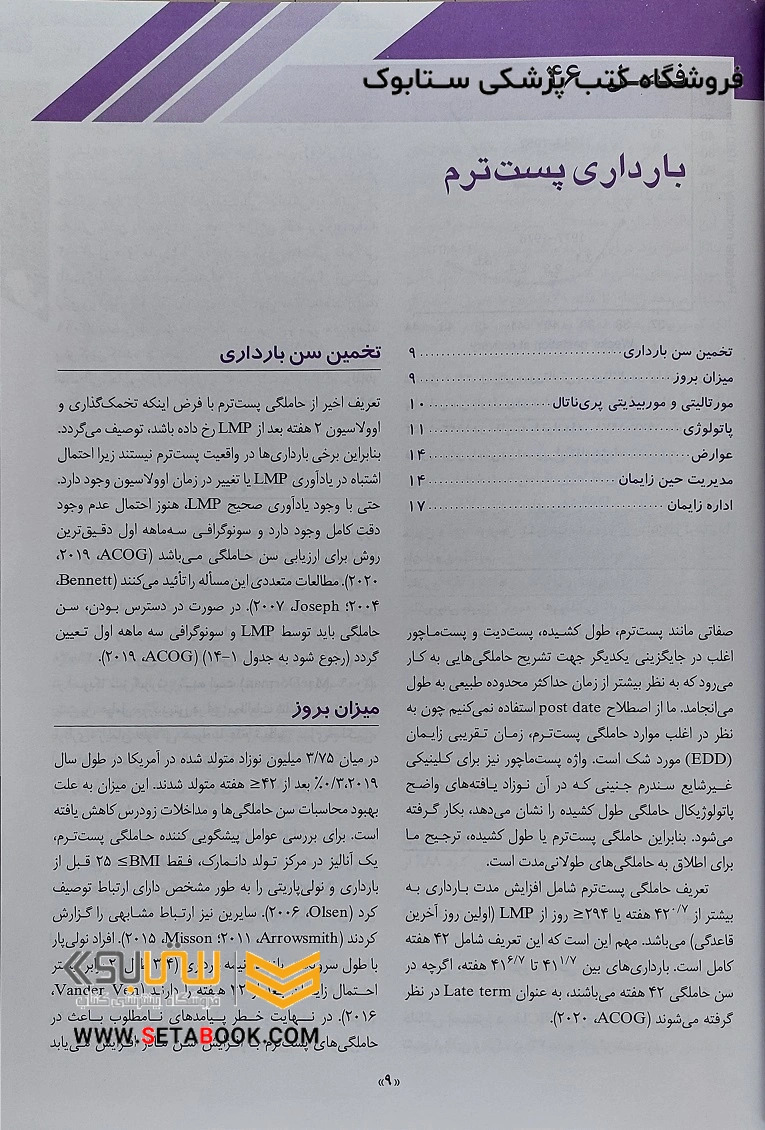 فروشگاه کتب پزشکی ستابوک
فصل ۴۶
بارداری پست‌ترم
تخمین سن بارداری ۹
میزان بروز ۹
مورتالیتی و موربیدیتی پری‌ناتال ۱۰
پاتولوژی ۱۱
عوارض ۱۴
مدیریت حین زایمان ۱۴
اداره زایمان ۱۷
صفاتی مانند پست‌ترم، طول کشیده، پست‌دیت و پست‌ماچور
اغلب در جایگزینی یکدیگر جهت تشریح حاملگی‌هایی به کار
می‌رود که به نظر بیشتر از زمان حداکثر محدوده طبیعی به طول
می‌انجامد. ما از اصطلاح post date استفاده نمی‌کنیم چون به
نظر در اغلب موارد حاملگی پست‌ترم، زمان تقریبی زایمان
(EDD) مورد شک است. واژه پست‌ماچور نیز برای کلینیکی
غیرشایع سندرم جنینی که در آن نوزاد یافته‌های واضح
پاتولوژیکال حاملگی طول کشیده را نشان می‌دهد، بکار گرفته
می‌شود. بنابراین حاملگی پست‌ترم یا طول کشیده، ترجیح ما
برای اطلاق به حاملگی‌های طولانی‌مدت است.
تعریف حاملگی پست‌ترم شامل افزایش مدت بارداری به
بیشتر از ۴۲۰/۷ هفته یا ۲۹۴≤ روز از LMP (اولین روز آخرین
قاعدگی) می‌باشد. مهم این است که این تعریف شامل ۴۲ هفته
کامل است. بارداری‌های بین ۴۱۱/۷ تا ۴۱۶/۷ هفته، اگرچه در
سن حاملگی ۴۲ هفته می‌باشند، به عنوان Late term در نظر
گرفته می‌شوند (ACOG، ۲۰۲۰).
تخمین سن بارداری
تعریف اخیر از حاملگی پست‌ترم با فرض اینکه تخمک‌گذاری و
اوولاسیون ۲ هفته بعد از LMP رخ داده باشد، توصیف می‌گردد.
بنابراین برخی بارداری‌ها در واقعیت پست‌ترم نیستند زیرا احتمال
اشتباه در یادآوری LMP یا تغییر در زمان اوولاسیون وجود دارد.
حتی با وجود یادآوری صحیح LMP، هنوز احتمال عدم وجود
دقت کامل وجود دارد و سونوگرافی سه‌ماهه اول دقیق‌ترین
روش برای ارزیابی سن حاملگی می‌باشد (ACOG، ۲۰۱۹،
۲۰۲۰). مطالعات متعددی این مسأله را تأئید می‌کنند (Bennett،
۲۰۰۴؛ Joseph، ۲۰۰۷). در صورت در دسترس بودن، سن
حاملگی باید توسط LMP و سونوگرافی سه ماهه اول تعیین
گردد (رجوع شود به جدول ۱-۱۴) (ACOG، ۲۰۱۹).
میزان بروز
در میان ۳/۷۵ میلیون نوزاد متولد شده در آمریکا در طول سال
۲۰۱۹، ۰/۳٪ بعد از ۴۲≤ هفته متولد شدند. این میزان به علت
بهبود محاسبات سن حاملگی‌ها و مداخلات زودرس کاهش یافته
است. برای بررسی عوامل پیشگویی کننده حاملگی پست‌ترم،
یک آنالیز در مرکز تولد دانمارک، فقط BMI≥ ۲۵ قبل از
بارداری و نولی‌پاریتی را به طور مشخص دارای ارتباط توصیف
کرد (Olsen، ۲۰۰۶). سایرین نیز ارتباط مشابهی را گزارش
کردند (Arrowsmith، ۲۰۱۱؛ Misson، ۲۰۱۵). افراد نولی‌پار
با طول نیمه
احتمال بعد از ۴۲ هفته را دارند (Vander Ven،
۲۰۱۶). در نهایت خطر پیامدهای نامطلوب باعث در
حاملگی‌های پست‌ترم با افزایش سن مادر افزایش می‌یابد
ستابوک
فروشگاه اینترنتی کتاب
WWW.SETABOOK.COM
«۹»